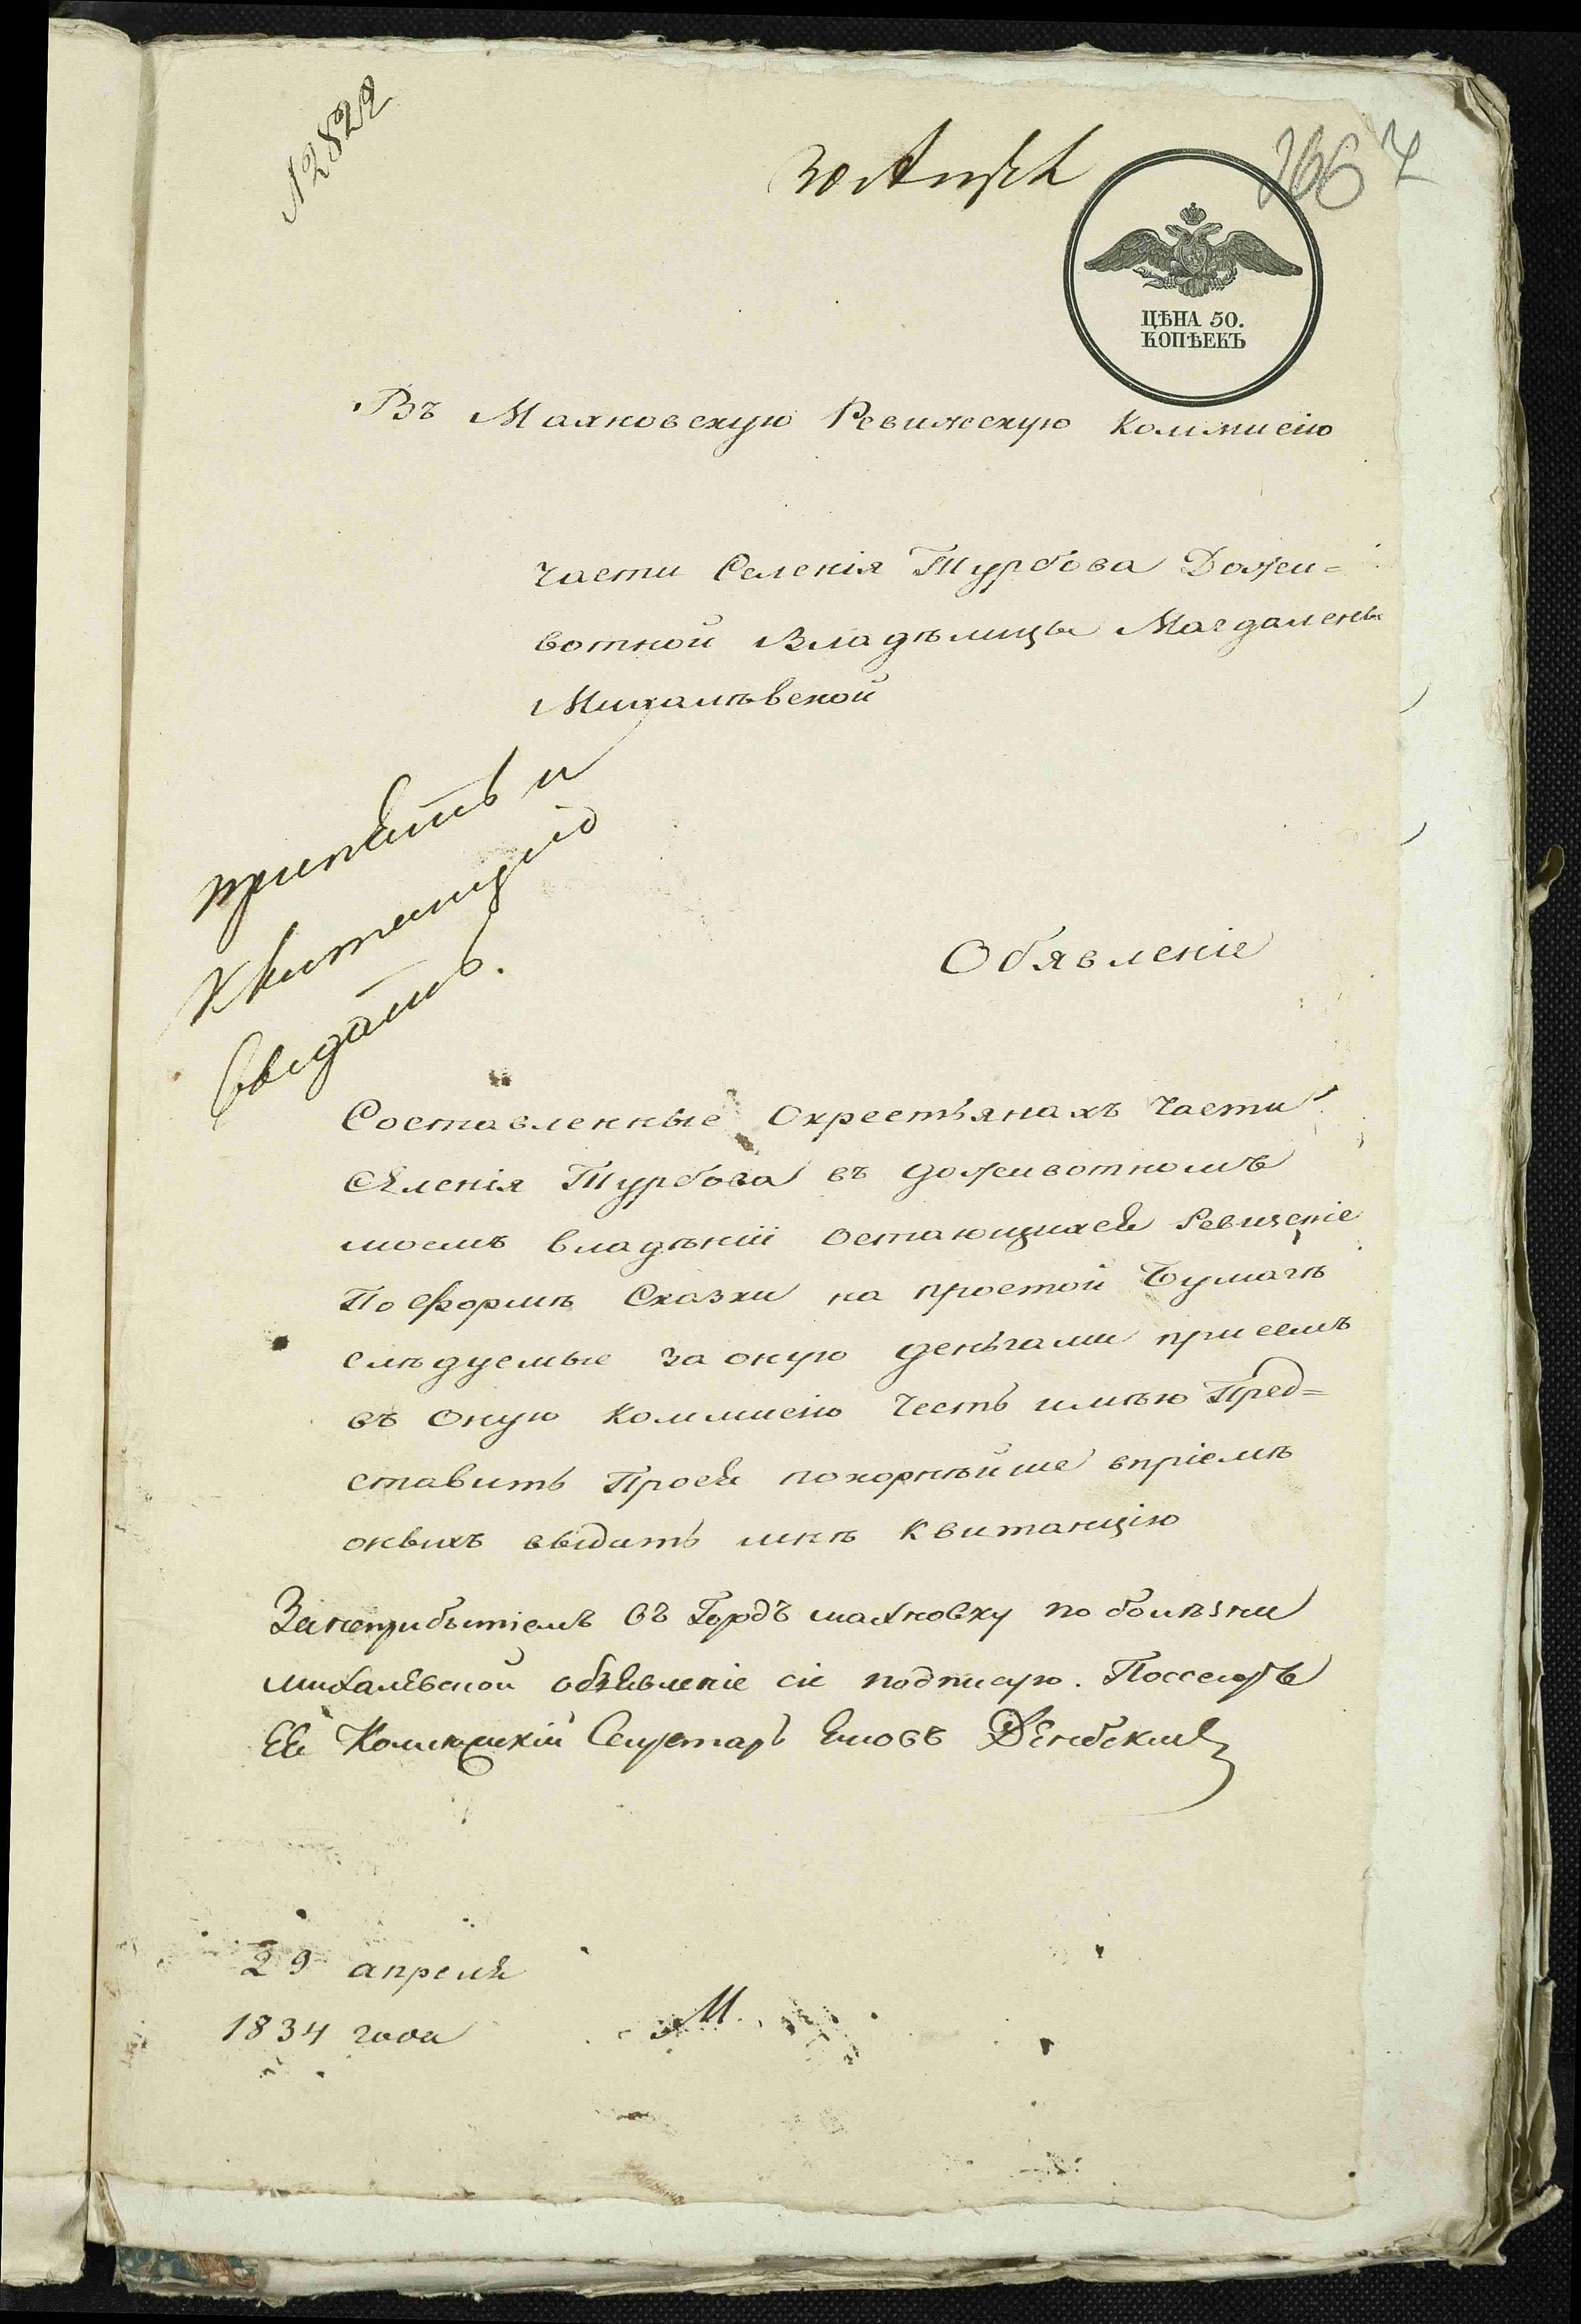 № 2822
30 Апрѣл
266 7
ЦѢНА 50.
КОПѢЕКЪ
Въ Махновскую Ревижскую Коммисію
части Селенія Турбова Дожи=
вотной Владѣлицы Магдалены
Михалѣвской
принять и
квитанцію
выдать.
Обявленіе
Составленные Окрестьянахъ части
Селенія Турбова въ доживотномъ
моемъ владѣніи Остающихся Ревизскіе
По Формѣ Сказки на простой Бумагѣ
слѣдуемые за оную деньгами при семъ
въ Оную Коммисію Честь имѣю Пред=
ставить Прося покорнѣйше вприемѣ
оныхъ выдать мнѣ Квитанцію
За неприбытіемъ въ Городъ махновку по болѣзни
михалевской обявленіе сіе подписую. Посесоръ
Ее Секретарь
29 апреля
1834 года
М.